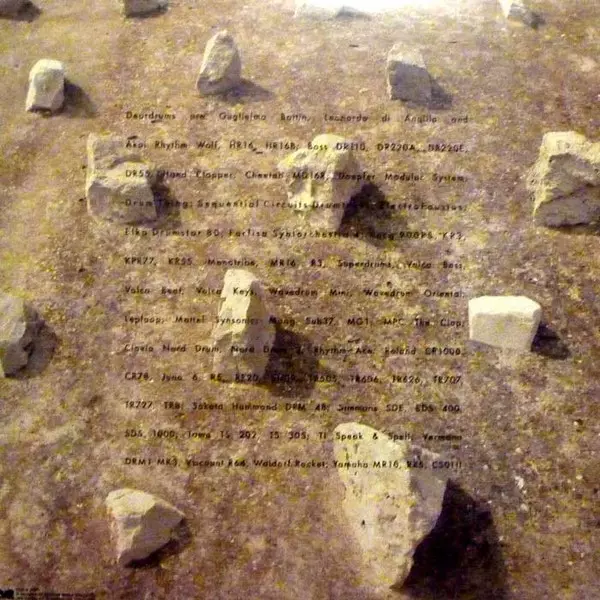 Deurdrums are Guglielmo Bottin, Leonardo di Angilla and
Akai Rhythm Wolf, HR16, HR16B; Boss DR110, DR220A, DR220E,
DR55, Hand Clapper; Cheetah MD16R; Doepfer Modular System;
Drum Thing; Sequential Circuits ElectroFaustus;
Elka Drumstar 80; Farfisa Syntorchestra 4; Korg 900PS, KP3,
KPR77, KR55, Monotribe, MR16, R3, Superdrums, Volca Bass,
Volca Beat, Volca Keys, Wavedrum Mini, Wavedrum Oriental;
Leploop; Mattel Synsonic; Moog Sub37, MG1; MPC The Clap;
Clavia Nord Drum, Nord Drum Rhythm Ace; Roland CR1000,
CR78, Juno 6, R8, RE20, TR505, TR606, TR626, TR707,
TR727, TR8; Sakata Hammond DPM 48; Simmons SDE, SDS 400,
SDS 1000; TS 202, TS 305; TI Speak & Spell; Vermona
DRM1 MK3, Viscount R64, Waldorf Rocket; Yamaha MR10, RX5,